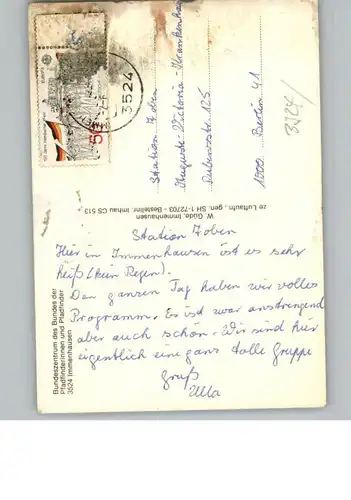 3524
50
Station 7 oben
Auguste-Victoria-Krankenhaus
Rubensstr. 125
1000 Berlin 41
3524/
ze Luftaufn. gen. SH 1-72703 - Bestellnr. Imhau CS 513
W. Gilde, Immenhausen
Station 7 oben
Hier in Immenhausen ist es sehr
heiß (kein Regen).
Den ganzen Tag haben wir volles
Programm. Es ist zwar anstrengend
aber auch schön. Wir sind hier
eigentlich eine ganz tolle Gruppe
Gruß
Ulla
Bundeszentrum des Bundes der
Pfadfinderinnen und Pfadfinder
3524 Immenhausen